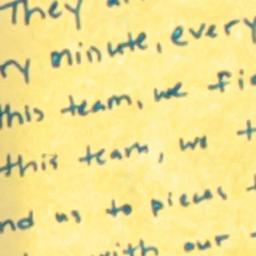 They
minute, every
this team, we
this team, we
us to pieces
with our